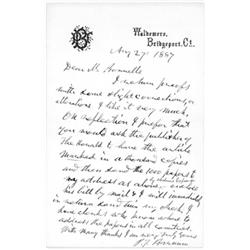 Waldemere,
Bridgeport, Ct.
Aug 27 1887
Dear Mr
I return proofs
with some slight corrections, or
alterations. I like it very much.
On reflection I prefer that
you would ask the publisher of
the to have the article
marked in a copies
and then send the 1000 papers to
my address as above enclose
his bill by mail & I will
in return send him my check. I
have clerks who can
address the papers in all countries.
With many thanks I am very truly yours
P. T. Barnum